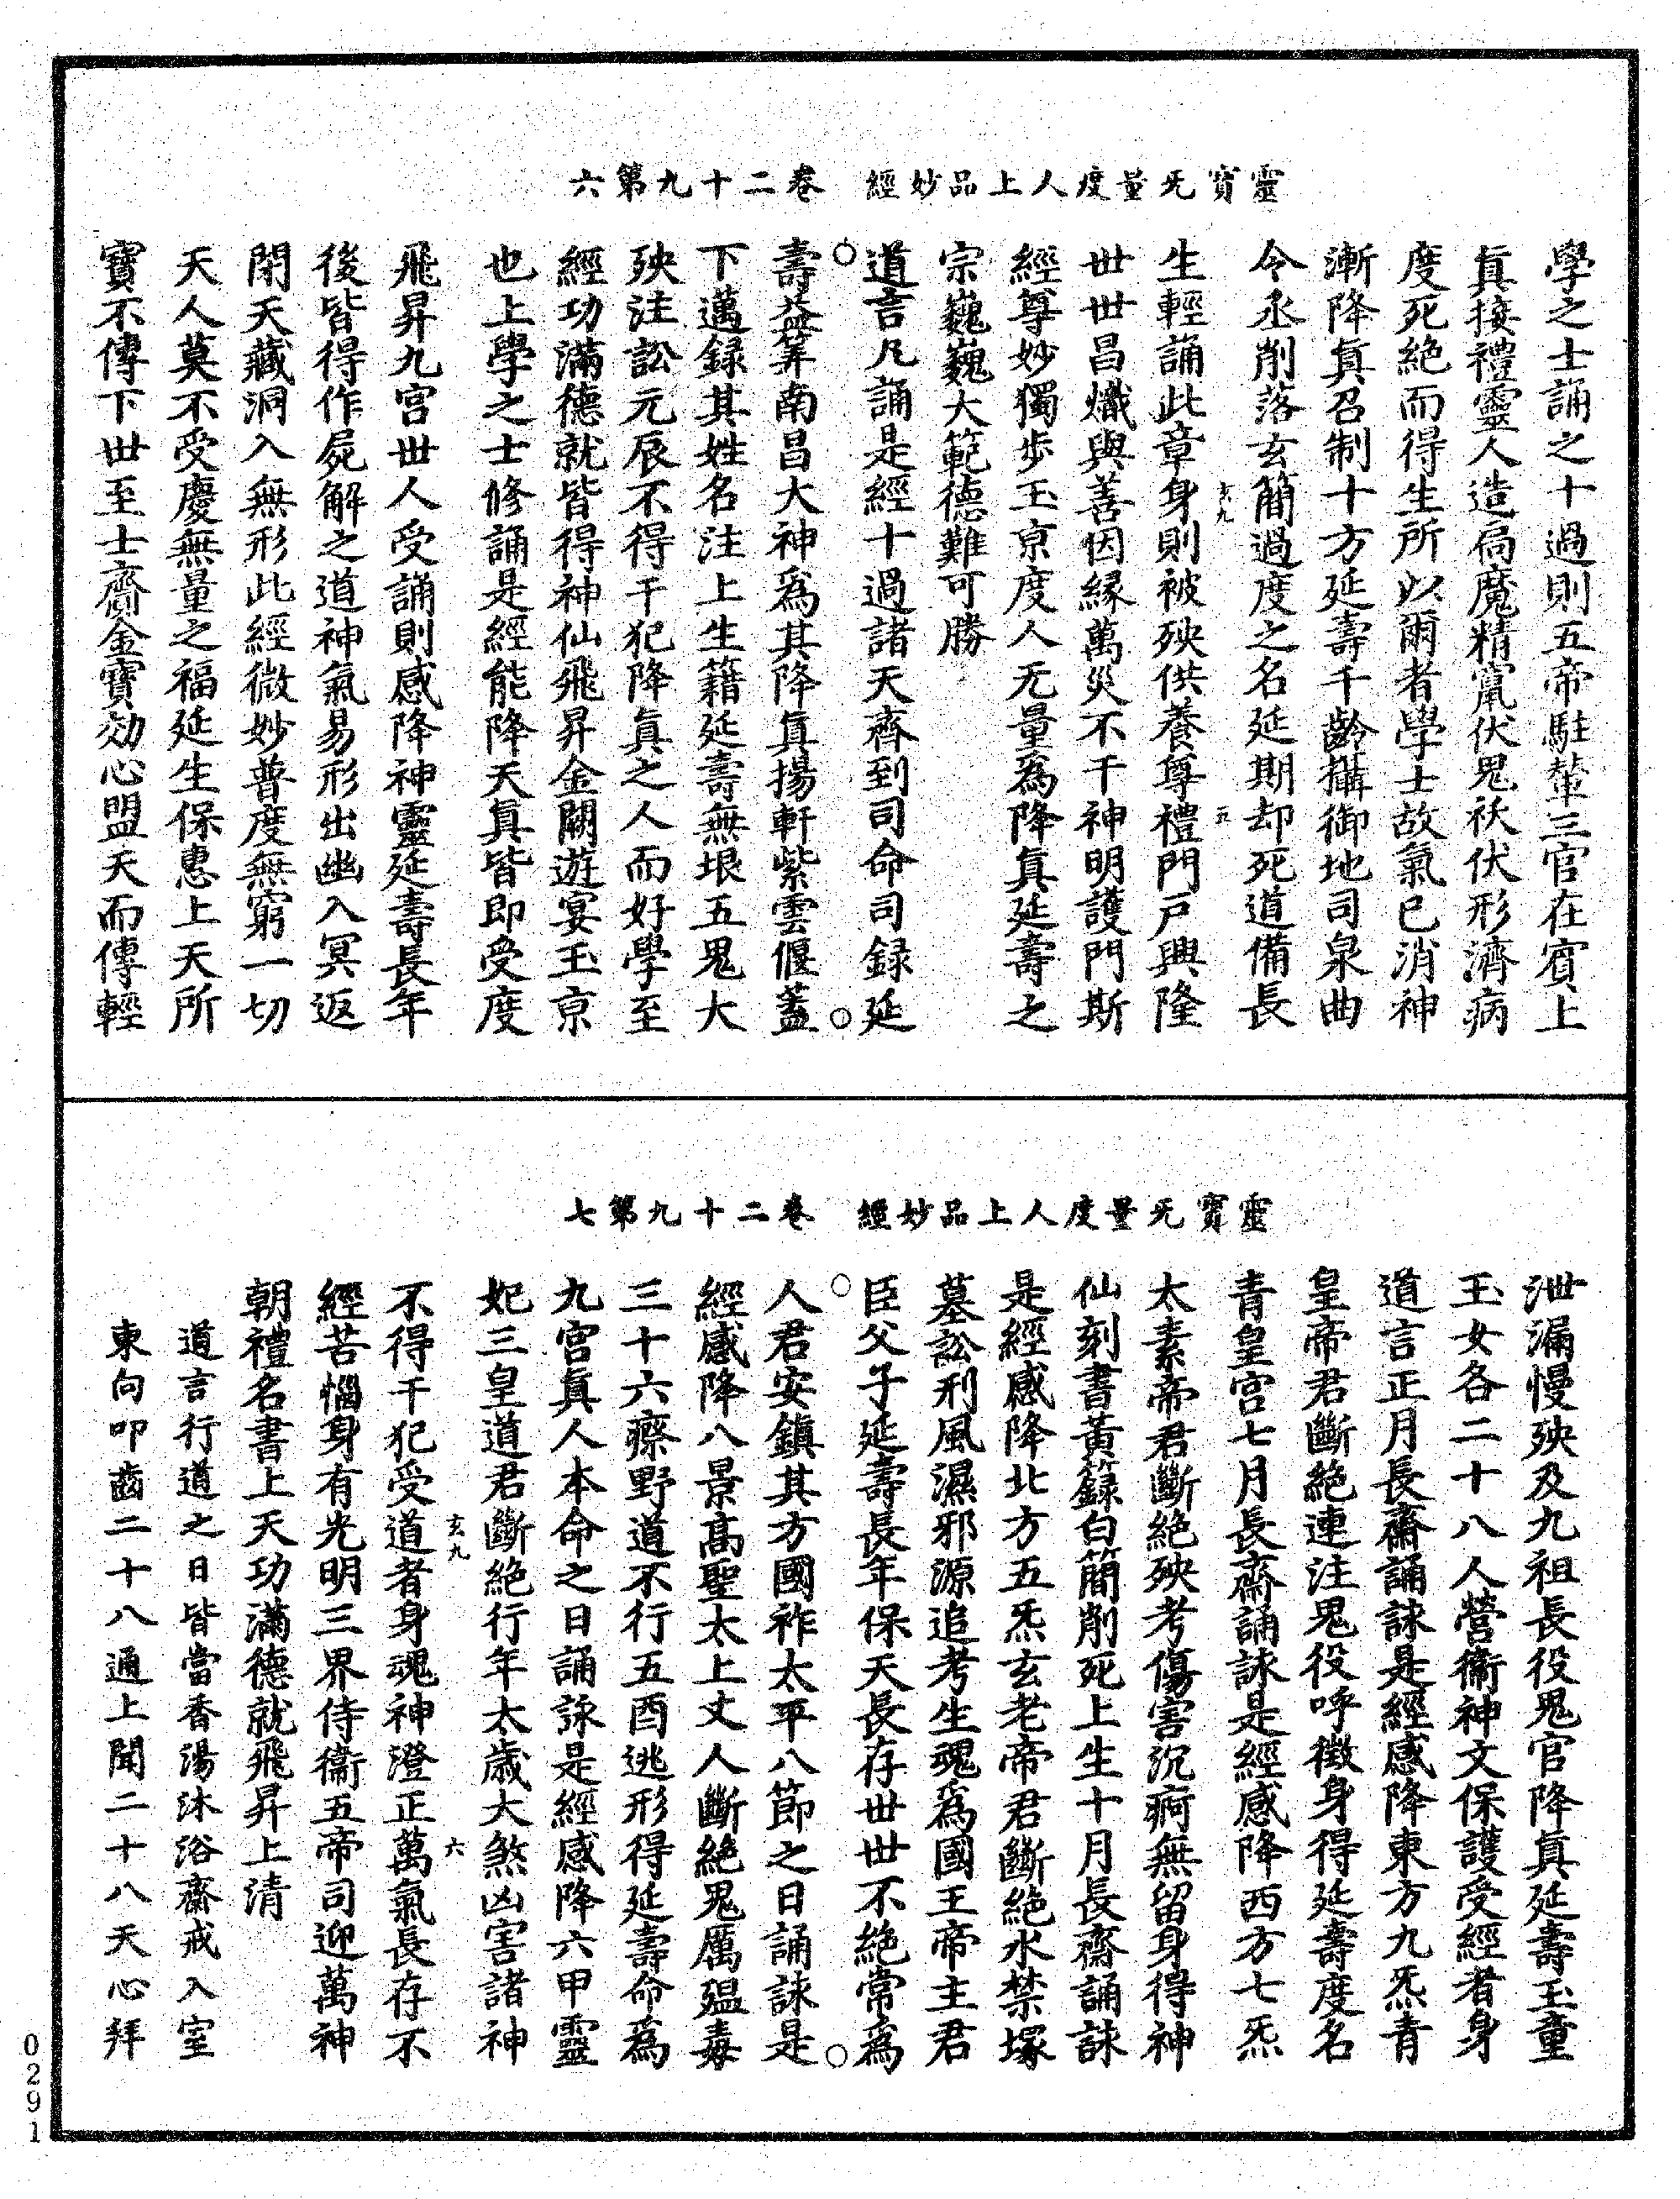 靈寶无量度人上品妙經　卷二十九第六
學之士誦之十過則五帝駐輦三官在賓上
真接禮靈人造扃魔精竄伏鬼祅伏形濟病
度死絕而得生所以爾者學士故氣已消神
漸降真召制十方延壽千齡攝御地司泉曲
令丞削落玄簡過度之名延期却死道備長
玄九　五
生輕誦此章身則被殃供養尊禮門戶興隆
世世昌熾與善因緣萬災不干神明護門斯
經尊妙獨步玉京度人无量為降真延壽之
宗巍巍大範德難可勝
道言凡誦是經十過諸天齊到司命司錄延
壽益筭南昌大神為其降真揚軒紫雲偃蓋
下邁錄其姓名注上生籍延壽無垠五鬼大
殃注訟元辰不得干犯降真之人而好學至
經功滿德就皆得神仙飛昇金闕遊宴玉京
也上學之士修誦是經能降天真皆即受度
飛昇九宮世人受誦則感降神靈延壽長年
後皆得作屍解之道神氣易形出幽入冥返
閉天藏洞入無形此經微妙普度無窮一切
天人莫不受慶無量之福延生保惠上天所
寶不傳下世至士齎金寶効心盟天而傳輕
靈寶无量度人上品妙經　卷二十九第七
泄漏慢殃及九祖長役鬼官降真延壽玉童
玉女各二十八人營衞神文保護受經者身
道言正月長齋誦詠是經感降東方九炁青
皇帝君斷絕連注鬼役呼徵身得延壽度名
青皇宮七月長齋誦詠是經感降西方七炁
太素帝君斷絕殃考傷害沉痾無留身得神
仙刻書黃籙白簡削死上生十月長齋誦詠
是經感降北方五炁玄老帝君斷絕水禁塚
墓訟利風濕邪源追考生魂為國王帝主君
臣父子延壽長年保天長存世世不絕常為
人君安鎮其方國祚太平八節之日誦詠是
經感降八景高聖太上丈人斷絕鬼厲殟毒
三十六瘵野道不行五酉逃形得延壽命為
九宮真人本命之日誦詠是經感降六甲靈
妃三皇道君斷絕行年太歲大煞凶害諸神
玄九　六
不得干犯受道者身魂神澄正萬氣長存不
經苦惱身有光明三界侍衞五帝司迎萬神
朝禮名書上天功滿德就飛昇上清
道言行道之日皆當香湯沐浴齋戒入室
東向叩齒二十八通上聞二十八天心拜
0291